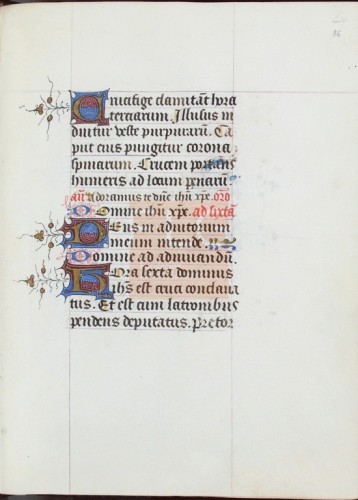 86
Crucifige clamitāt hora
terciarum. Illusus in
duitur veste purpurarū. Ca
put eius pungitur corona
spinarum. Crucem portans
humeris ad locum penarū
añ. Adoramus te dñe ihū xp̄e. oro
Domine ihū xp̄e. ad sextā
Deus in adiutorium
meum intende.
Domine ad adiuvandū
Hora sexta dominus
ihs est cruci conclava
tus. Et est cum latronibus
pendens deputatus. Pre tor